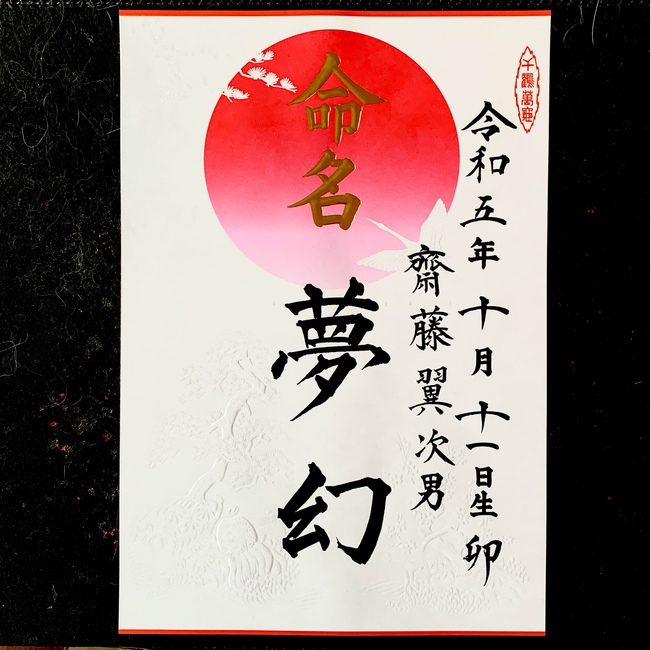 千鶴萬龜
令和五年十月十一日生 卯
齋藤翼次男
命名
夢幻